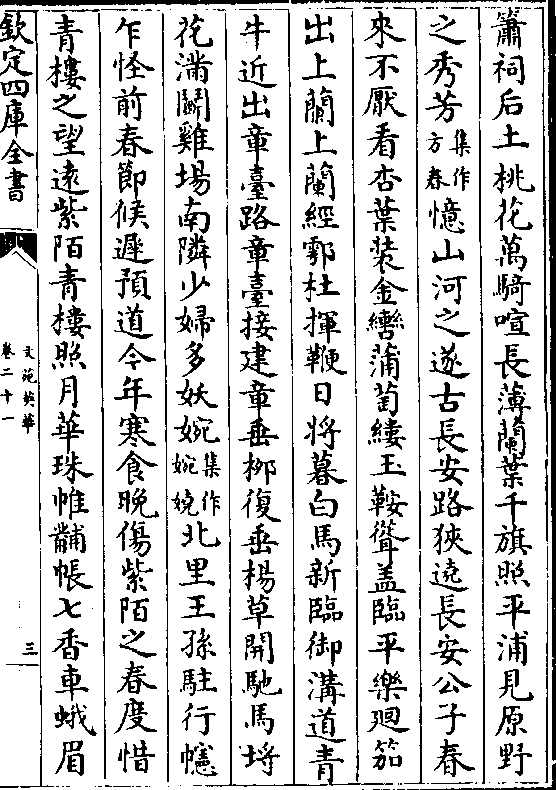 簫祠后土桃花萬騎喧長薄蘭葉千旗照平浦見原野
之秀芳集作方春憶山河之遂古長安路狹遶長安公子春
來不厭看杏葉裝金轡蒲萄縷玉鞍聳盖臨平樂廻笳
出上蘭上蘭經鄠杜揮鞭日將暮白馬新臨御溝道青
牛近出章臺路章臺接建章垂栁復垂楊草開馳馬埒
花滿鬭雞塲南隣少婦多妖婉集作婉娆北里王孫駐行幰
乍怪前春節候遲預道今年寒食晚傷紫陌之春度惜
青樓之望逺紫陌青樓照月華珠帷黼帳七香車蛾眉
欽定四庫全書
文苑英華
卷二十一
三